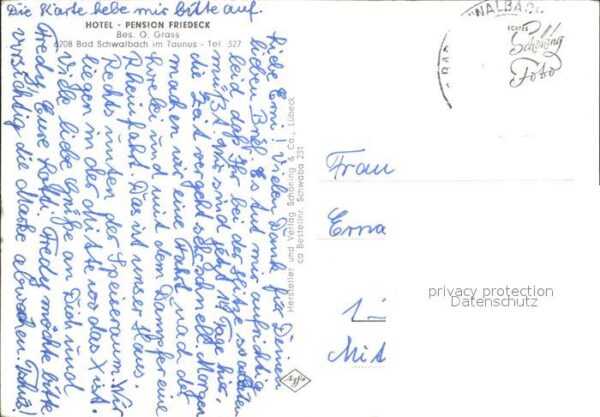 Die Karte hebe mir bitte auf.
HOTEL - PENSION FRIEDECK
Bes. O. Grass
6208 Bad Schwalbach im Taunus - Tel. 327
Liebe Erni! Vielen Dank für Deinen
lieben Brief. Es tut mir aufrichtig
leid daß Ihr bei der Hitze so arbeiten
müßt. Wir sind jetzt 14 Tage hier,
die Zeit vergeht so schnell. Morgen
machen wir eine Fahrt nach der
Loreley und mit dem Dampfer eine
Rheinfahrt. Das ist unser Haus.
Rechts unten der Speiseraum. Wir
liegen in der Mitte wo das X ist.
Viele liebe Grüße an Dich und
Fredy Eure Lotti. Fredy möchte bitte
vorsichtig die Marke abwaschen. Tschüß!
Hersteller und Verlag Schöning & Co., Lübeck
ca Bestellnr. Schwaba 231
Agfa
WALBAC
BAD
ECHTES
Schöning
Foto
Frau
Erna
Mit
privacy protection
Datenschutz